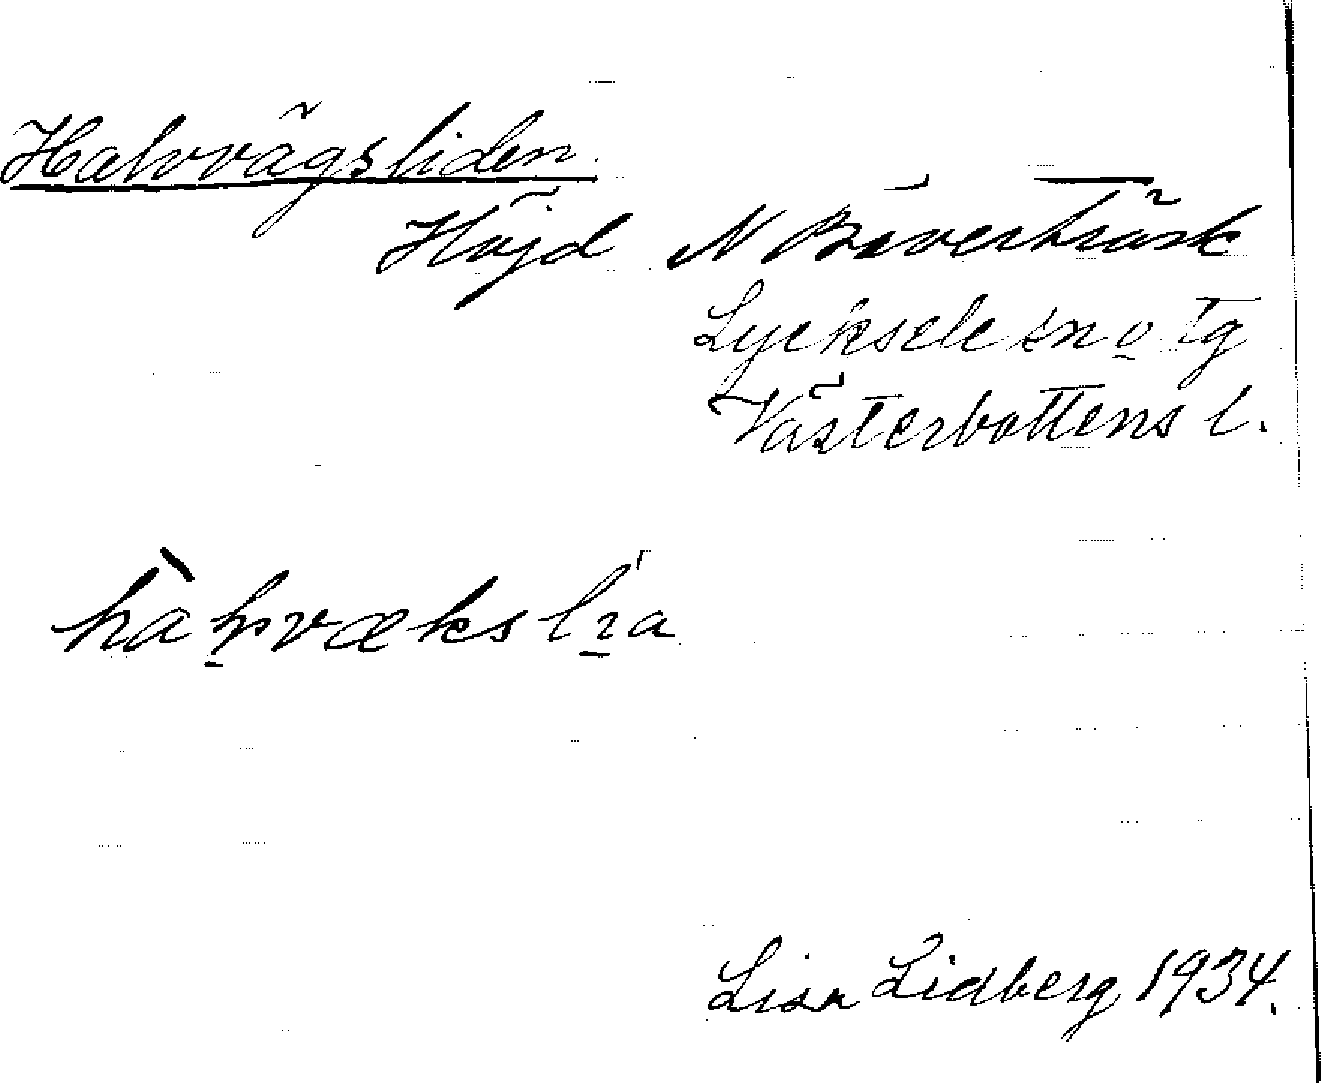 Halvvägsliden
Höjd N Bäverträsk
Lycksele sn o tg
Västerbottens l.
Lisa Lidberg 1934.